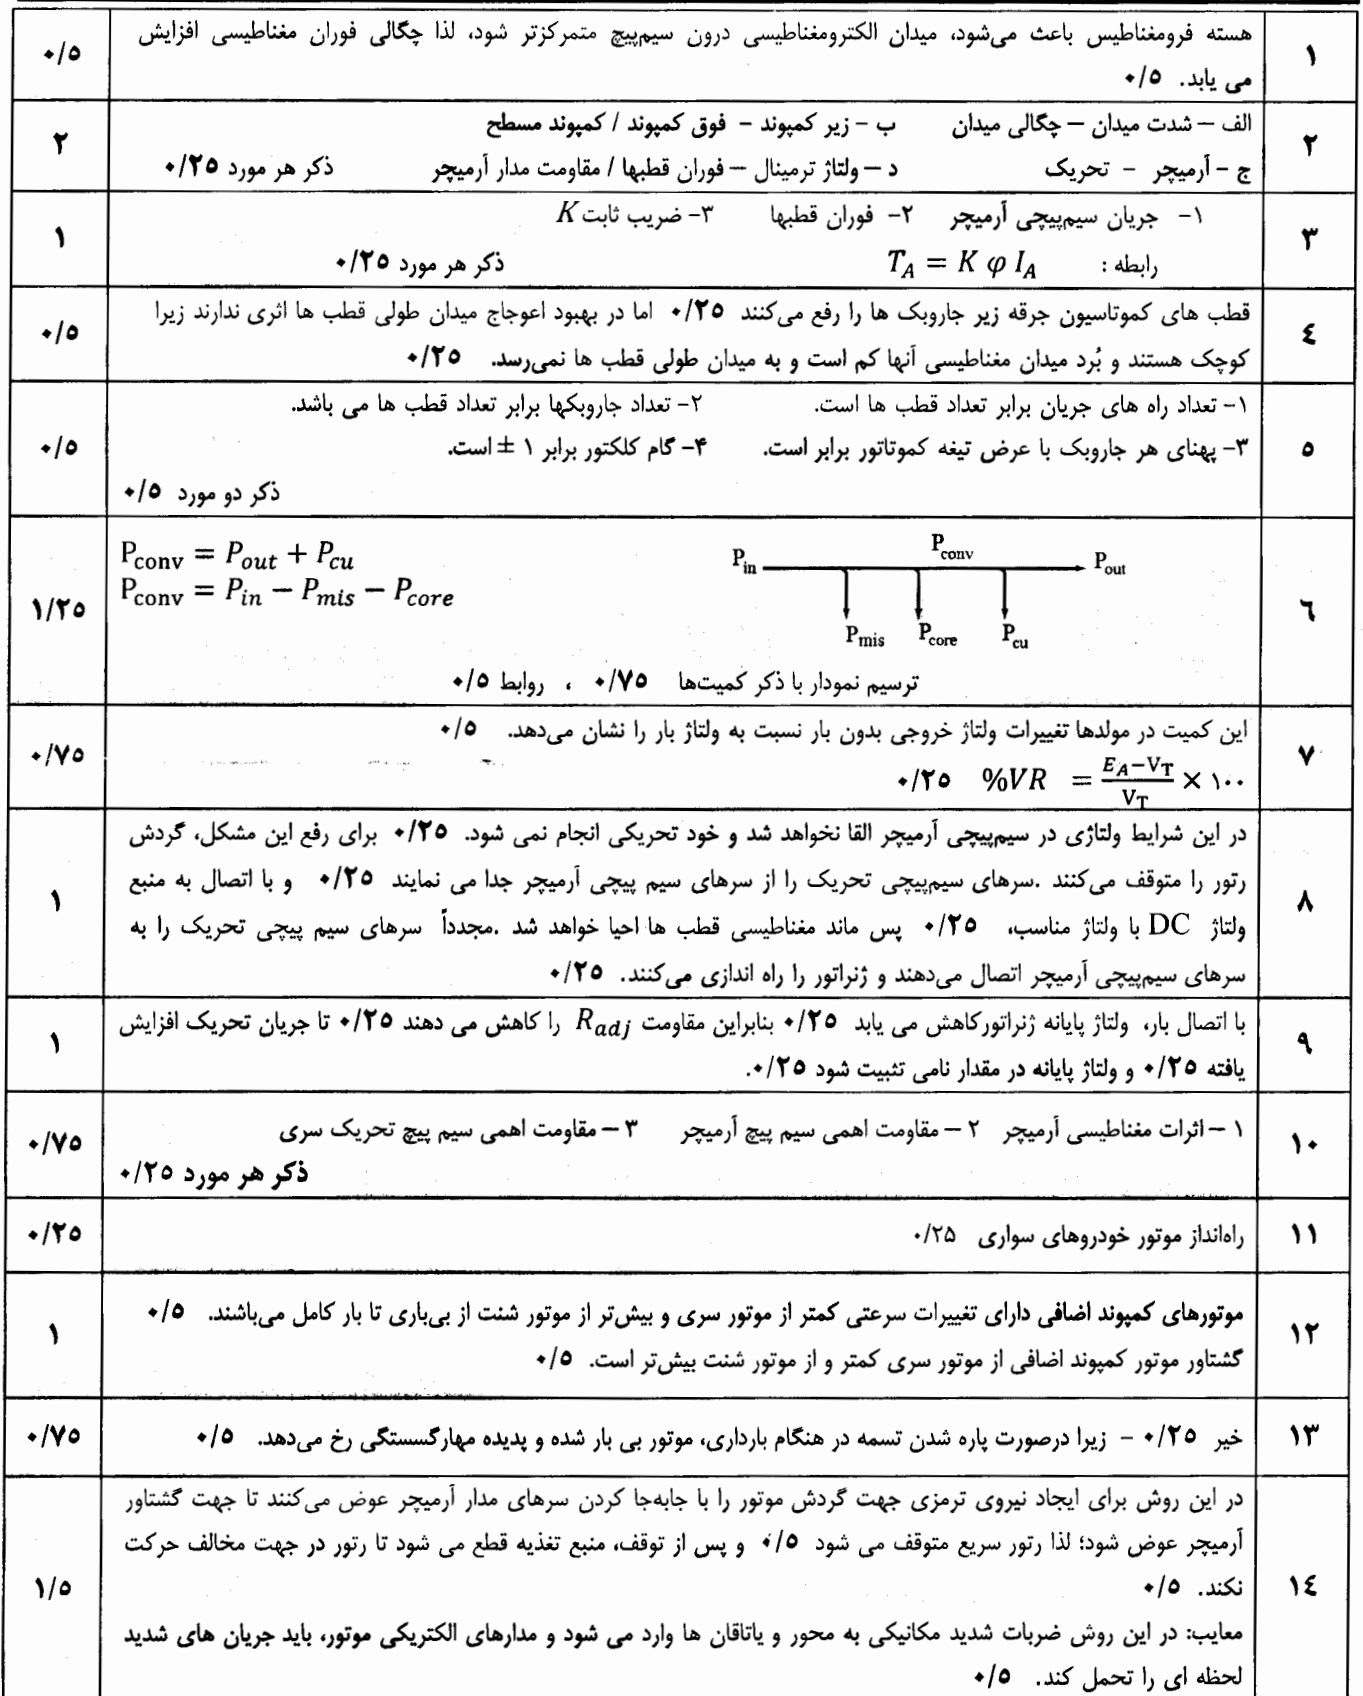 ۱ هسته فرومغناطیس باعث می‌شود، میدان الکترومغناطیسی درون سیم‌پیچ متمرکزتر شود، لذا چگالی فوران مغناطیسی افزایش ۰/۵
می یابد. ۰/۵
۲ الف – شدت میدان – چگالی میدان ب – زیر کمپوند – فوق کمپوند / کمپوند مسطح ۲
ج – آرمیچر – تحریک د – ولتاژ ترمینال – فوران قطبها / مقاومت مدار آرمیچر ذکر هر مورد ۰/۲۵
۳ ۱- جریان سیم‌پیچی آرمیچر ۲- فوران قطبها ۳- ضریب ثابت K ۱
رابطه : T_A = K φ I_A ذکر هر مورد ۰/۲۵
۴ قطب های کموتاسیون جرقه زیر جاروبک ها را رفع می‌کنند ۰/۲۵ اما در بهبود اعوجاج میدان طولی قطب ها اثری ندارند زیرا ۰/۵
کوچک هستند و بُرد میدان مغناطیسی آنها کم است و به میدان طولی قطب ها نمی‌رسد. ۰/۲۵
۵ ۱- تعداد راه های جریان برابر تعداد قطب ها است. ۲- تعداد جاروبکها برابر تعداد قطب ها می باشد. ۰/۵
۳- پهنای هر جاروبک با عرض تیغه کموتاتور برابر است. ۴- گام کلکتور برابر ۱ ± است.
ذکر دو مورد ۰/۵
۶ P_conv = P_out + P_cu ۱/۲۵
P_conv = P_in − P_mis − P_core
P_in P_conv P_out
P_mis P_core P_cu
ترسیم نمودار با ذکر کمیت‌ها ۰/۷۵ ، روابط ۰/۵
۷ این کمیت در مولدها تغییرات ولتاژ خروجی بدون بار نسبت به ولتاژ بار را نشان می‌دهد. ۰/۵ ۰/۷۵
%VR = (E_A−V_T)/V_T × ۱۰۰ ۰/۲۵
۸ در این شرایط ولتاژی در سیم‌پیچی آرمیچر القا نخواهد شد و خود تحریکی انجام نمی شود. ۰/۲۵ برای رفع این مشکل، گردش ۱
رتور را متوقف می‌کنند .سرهای سیم‌پیچی تحریک را از سرهای سیم پیچی آرمیچر جدا می نمایند ۰/۲۵ و با اتصال به منبع
ولتاژ DC با ولتاژ مناسب، ۰/۲۵ پس ماند مغناطیسی قطب ها احیا خواهد شد .مجدداً سرهای سیم پیچی تحریک را به
سرهای سیم‌پیچی آرمیچر اتصال می‌دهند و ژنراتور را راه اندازی می‌کنند. ۰/۲۵
۹ با اتصال بار، ولتاژ پایانه ژنراتورکاهش می یابد ۰/۲۵ بنابراین مقاومت R_adj را کاهش می دهند ۰/۲۵ تا جریان تحریک افزایش ۱
یافته ۰/۲۵ و ولتاژ پایانه در مقدار نامی تثبیت شود ۰/۲۵.
۱۰ ۱ – اثرات مغناطیسی آرمیچر ۲ – مقاومت اهمی سیم پیچ آرمیچر ۳ – مقاومت اهمی سیم پیچ تحریک سری ۰/۷۵
ذکر هر مورد ۰/۲۵
۱۱ راه‌انداز موتور خودروهای سواری ۰/۲۵ ۰/۲۵
۱۲ موتورهای کمپوند اضافی دارای تغییرات سرعتی کمتر از موتور سری و بیش‌تر از موتور شنت از بی‌باری تا بار کامل می‌باشند. ۰/۵ ۱
گشتاور موتور کمپوند اضافی از موتور سری کمتر و از موتور شنت بیش‌تر است. ۰/۵
۱۳ خیر ۰/۲۵ – زیرا درصورت پاره شدن تسمه در هنگام بارداری، موتور بی بار شده و پدیده مهارگسستگی رخ می‌دهد. ۰/۵ ۰/۷۵
۱۴ در این روش برای ایجاد نیروی ترمزی جهت گردش موتور را با جابه‌جا کردن سرهای مدار آرمیچر عوض می‌کنند تا جهت گشتاور ۱/۵
آرمیچر عوض شود؛ لذا رتور سریع متوقف می شود ۰/۵ و پس از توقف، منبع تغذیه قطع می شود تا رتور در جهت مخالف حرکت
نکند. ۰/۵
معایب: در این روش ضربات شدید مکانیکی به محور و یاتاقان ها وارد می شود و مدارهای الکتریکی موتور، باید جریان های شدید
لحظه ای را تحمل کند. ۰/۵